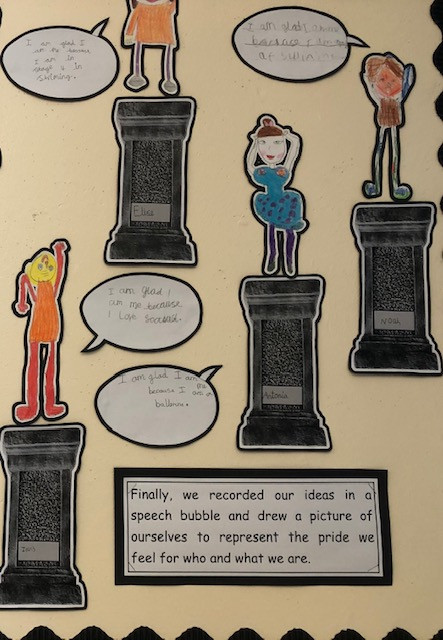 I am glad I
am me because
I am in
stage 2 in
swiming.
I am glad
because I
at
Elies
I am glad I
am me because
I Love
NOAH
I am glad I am
me
because I am a
ballerina.
Antonia
Finally, we recorded our ideas in a
speech bubble and drew a picture of
ourselves to represent the pride we
feel for who and what we are.